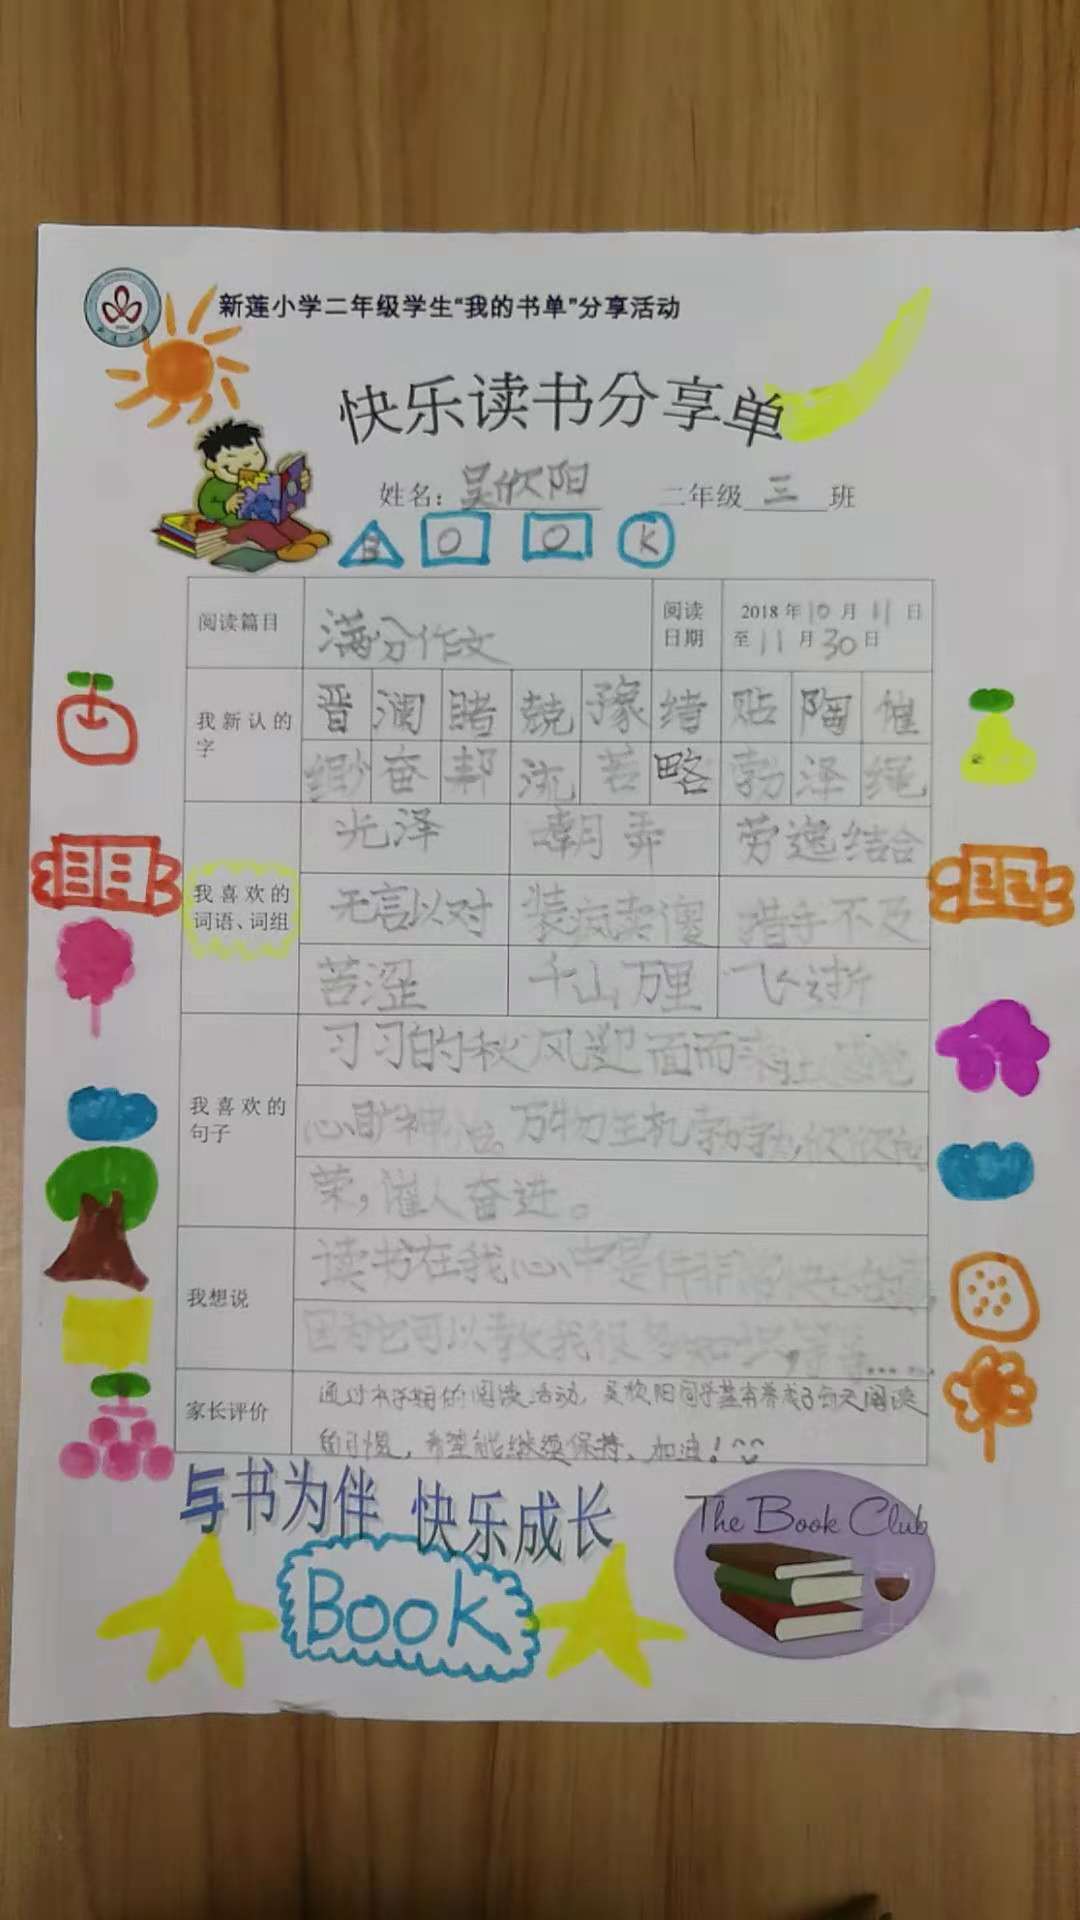 新莲小学二年级学生“我的书单”分享活动
快乐读书分享单
姓名：吴欣阳 二年级三班
B O O K
阅读篇目 满分作文 阅读日期 2018年10月11日至11月30日
我新认的字
晋 澜 睹 兢 豫 绪 贴 陶 催
缈 奋 帮 流 苦 略 勃 泽 绳
我喜欢的词语、词组
光泽 朝弄 劳逸结合
无言以对 装疯卖傻 措手不及
苦涩 千山万里 飞逝
我喜欢的句子
习习的秋风迎面而来
心旷神怡。万物生机勃勃，欣欣向
荣，催人奋进。
我想说
读书在我心中是件
因为它可以教我很多知识，等等……
家长评价
通过本学期的阅读活动，吴欣阳同学基本养成了每天阅读
的习惯，希望能继续保持、加油！
与书为伴 快乐成长
The Book Club
Book